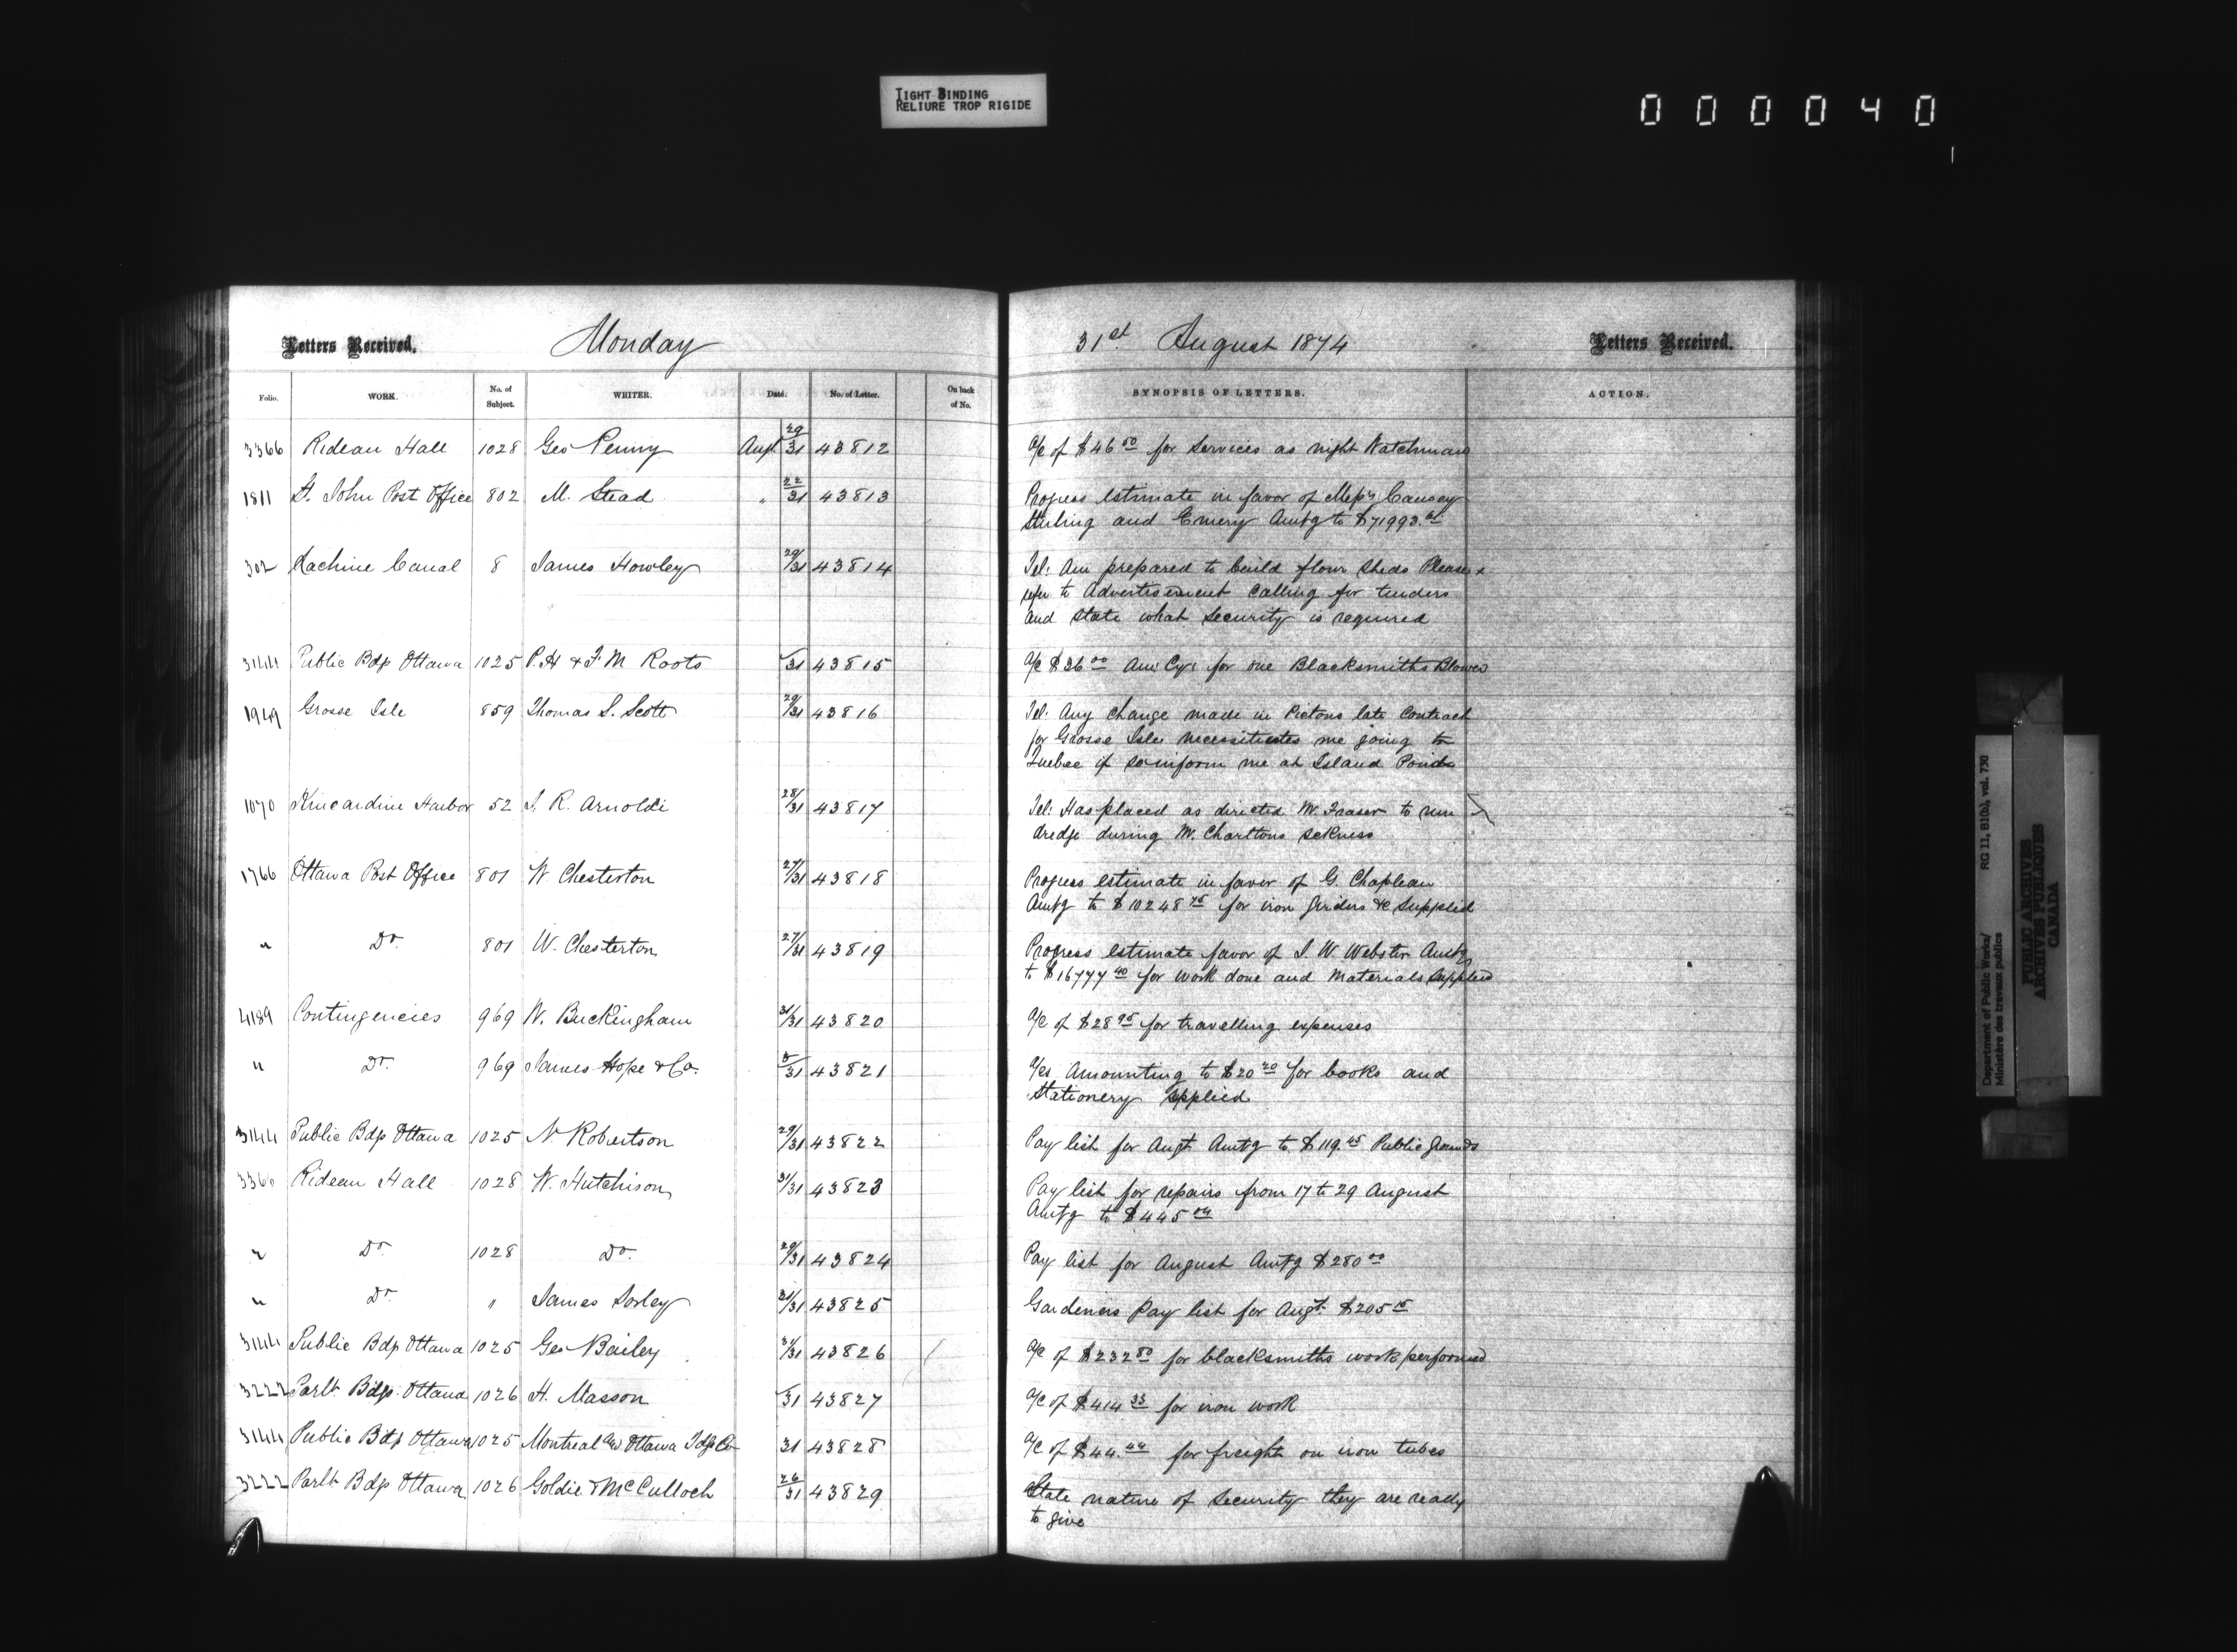 TIGHT BINDING
RELIURE TROP RIGIDE
000040
Letters Received. Monday 31st August 1874 Letters Received.
Folio. WORK. No. of Subject. WRITER. Date. No. of Letter. On back of No. SYNOPSIS OF LETTERS. ACTION.
3366 Rideau Hall 1028 Geo Penny Augt 29/31 43812 a/c of $46.50 for services as night Watchman
1811 St. John Post Office 802 M. Stead " 22/31 43813 Progress estimate in favor of Messrs Causey
Stirling and Emery Amtg to $71993.
302 Lachine Canal 8 James Howley 29/31 43814 Tel: Am prepared to build flour sheds Please
refer to Advertisement calling for tenders
and state what security is required
3144 Public Bdgs Ottawa 1025 P.H & F.M Roots /31 43815 a/c $36.00 Am: Cy: for one Blacksmiths Blower
1949 Grosse Isle 859 Thomas S. Scott 29/31 43816 Tel: Any change made in Pictons late Contract
for Grosse Isle necessitates me going to
Quebec if so inform me at Island Pond
1070 Kincardine Harbor 52 J. R. Arnoldi 28/31 43817 Tel: Has placed as directed Mr. Fraser to run
dredge during Mr. Charltons sickness
1766 Ottawa Post Office 801 W Chesterton 27/31 43818 Progress estimate in favor of G. Chapleau
Amtg to $10248.75 for iron girders &c supplied
" Do. 801 W. Chesterton 27/31 43819 Progress estimate favor of J. W. Webster Amtg
to $16777.40 for work done and materials supplied
4189 Contingencies 969 W. Buckingham 31/31 43820 a/c of $28.95 for travelling expenses
" Do. 969 James Hope & Co. /31 43821 a/cs Amounting to $20.20 for books and
Stationery supplied
3144 Public Bdgs Ottawa 1025 N Robertson 29/31 43822 Pay list for Augt Amtg to $119.45 Public grounds
3366 Rideau Hall 1028 W. Hutchison 31/31 43823 Pay list for repairs from 17 to 29 August
Amtg to $445.04
" Do. 1028 Do. 29/31 43824 Pay list for August Amtg $280.00
" Do. " James Sorley 31/31 43825 Gardeners Pay list for Augt. $205.15
3144 Public Bdgs Ottawa 1025 Geo Bailey 31/31 43826 a/c of $232.80 for blacksmiths work performed
3222 Parlt Bdgs Ottawa 1026 H. Masson /31 43827 a/c of $414.33 for iron work
3144 Public Bdgs Ottawa 1025 Montreal and Ottawa Fdg Co 31 43828 a/c of $44.44 for freight on iron tubes
3222 Parlt Bdgs Ottawa 1026 Goldie & McCulloch 26/31 43829 State nature of security they are ready
to give
Department of Public Works/ RG 11, B1(b), vol. 730
Ministère des travaux publics
PUBLIC ARCHIVES
ARCHIVES PUBLIQUES
CANADA